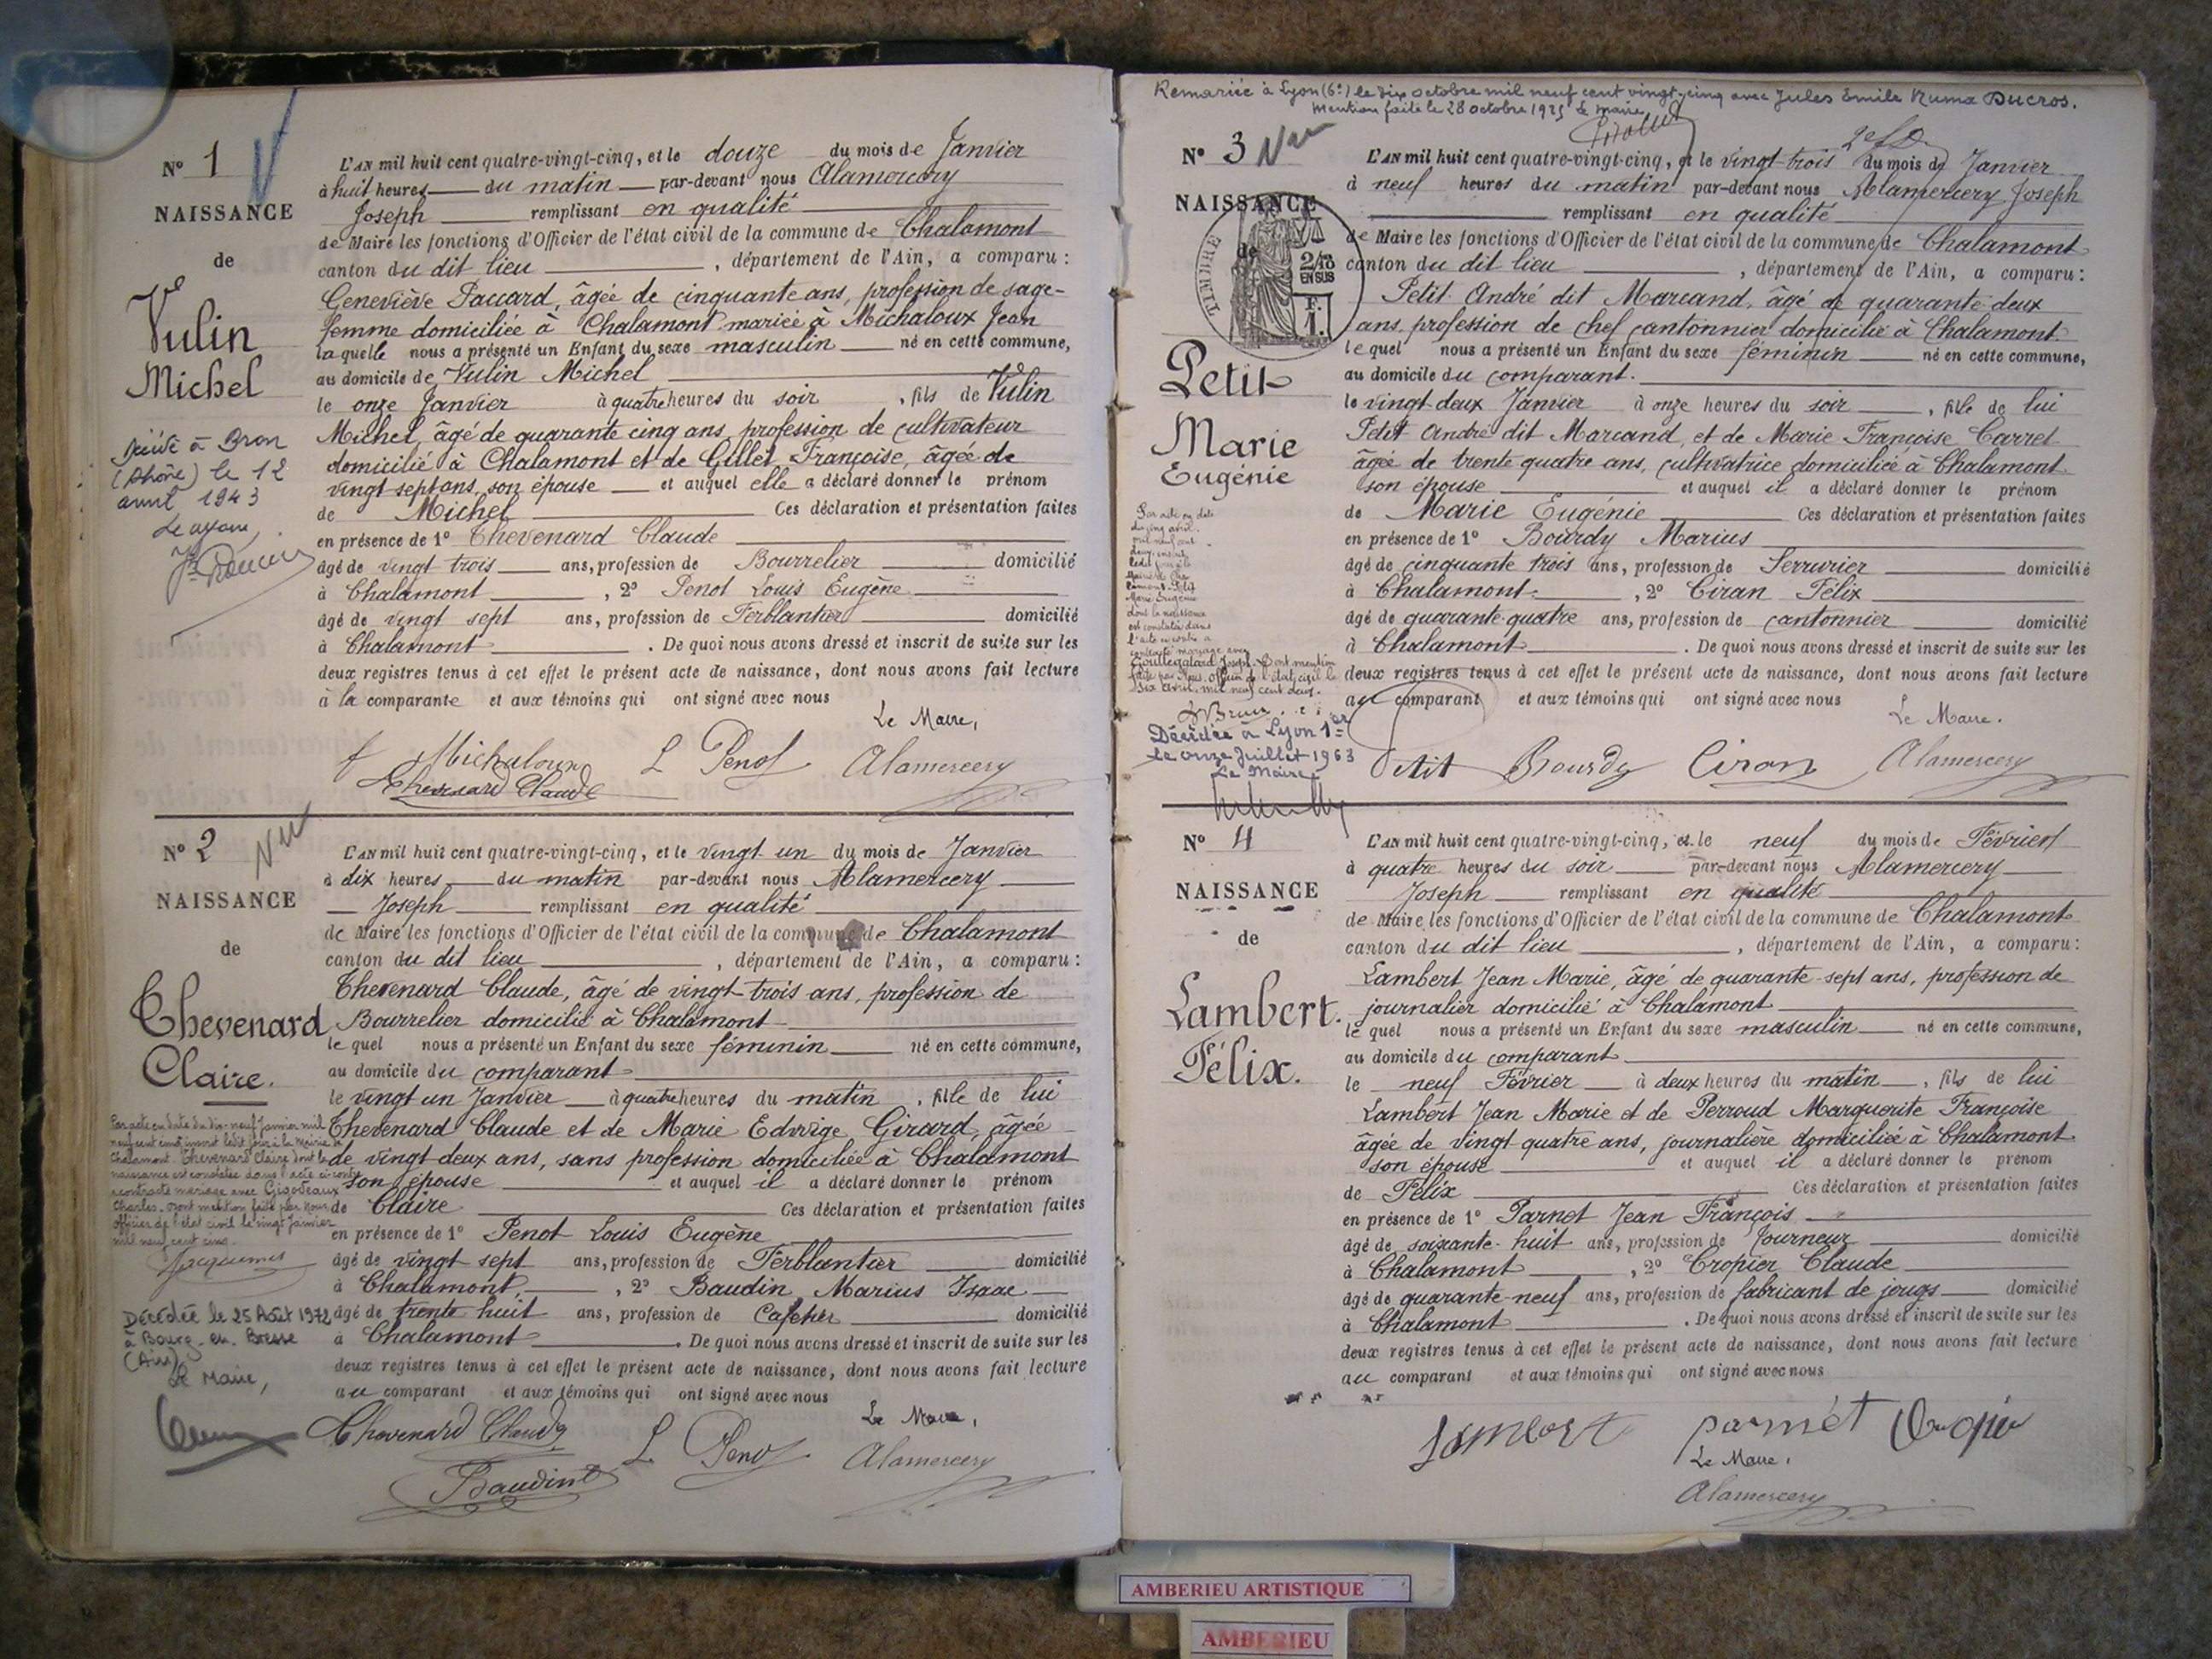 N° 1
NAISSANCE
de
Vulin
Michel
Décédé à Bron
(Rhône) le 12
avril 1943
L'AN mil huit cent quatre-vingt-cinq, et le douze du mois de Janvier
à huit heures du matin par-devant nous Alamercery
Joseph remplissant en qualité
de Maire les fonctions d'Officier de l'état civil de la commune de Chalamont
canton du dit lieu, département de l'Ain, a comparu :
Geneviève Paccard, âgée de cinquante ans, profession de sage-
femme domiciliée à Chalamont mariée à Michaloux Jean
laquelle nous a présenté un Enfant du sexe masculin né en cette commune,
au domicile de Vulin Michel
le onze Janvier à quatre heures du soir, fils de Vulin
Michel, âgé de quarante cinq ans, profession de cultivateur
domicilié à Chalamont et de Gillet Françoise, âgée de
vingt sept ans, son épouse et auquel elle a déclaré donner le prénom
de Michel Ces déclaration et présentation faites
en présence de 1° Thevenard Claude
âgé de vingt trois ans, profession de Bourrelier domicilié
à Chalamont, 2° Penot Louis Eugène
âgé de vingt sept ans, profession de Ferblantier domicilié
à Chalamont. De quoi nous avons dressé et inscrit de suite sur les
deux registres tenus à cet effet le présent acte de naissance, dont nous avons fait lecture
à la comparante et aux témoins qui ont signé avec nous
Le Maire,
f Michaloux L Penot Alamercery
Thevenard Claude
N° 2
NAISSANCE
de
Thevenard
Claire.
Par acte en date du dix-neuf Janvier mil
neuf cent cinq, inscrit ledit jour à la Mairie de
Chalamont. Thevenard Claire dont la
naissance est constatée dans l'acte ci-contre
a contracté mariage avec Gigodeaux
Charles. Dont mention faite par nous
officier de l'état civil le vingt Janvier
mil neuf cent cinq.
Jacquemet
Décédée le 25 Août 1972
à Bourg-en-Bresse
(Ain)
Le Maire,
L'AN mil huit cent quatre-vingt-cinq, et le vingt un du mois de Janvier
à dix heures du matin par-devant nous Alamercery
Joseph remplissant en qualité
de Maire les fonctions d'Officier de l'état civil de la commune de Chalamont
canton du dit lieu, département de l'Ain, a comparu :
Thevenard Claude, âgé de vingt-trois ans, profession de
Bourrelier domicilié à Chalamont
lequel nous a présenté un Enfant du sexe féminin né en cette commune,
au domicile du comparant
le vingt un Janvier à quatre heures du matin, fille de lui
Thevenard Claude et de Marie Edwige Girard, âgée
de vingt deux ans, sans profession domiciliée à Chalamont
son épouse et auquel il a déclaré donner le prénom
de Claire Ces déclaration et présentation faites
en présence de 1° Penot Louis Eugène
âgé de vingt sept ans, profession de Ferblantier domicilié
à Chalamont, 2° Baudin Marius Isaac
âgé de trente huit ans, profession de Cafetier domicilié
à Chalamont. De quoi nous avons dressé et inscrit de suite sur les
deux registres tenus à cet effet le présent acte de naissance, dont nous avons fait lecture
au comparant et aux témoins qui ont signé avec nous
Le Maire,
Thevenard Claude L. Penot Alamercery
Baudin
Remariée à Lyon (6e) le dix octobre mil neuf cent vingt-cinq avec Jules Emile Numa Ducros.
Mention faite le 28 octobre 1925 Le maire
N° 3
NAISSANCE
de
TIMBRE
2/10
EN SUS
F.
1.
Petit
Marie
Eugénie
Par acte en date
du cinq avril
mil neuf cent
deux, inscrit
ledit jour à la
Mairie de Cha
lamont. Petit
Marie Eugénie
dont la naissance
est constatée dans
l'acte ci-contre a
contracté mariage avec
Joseph. Dont mention
faite par nous officier de l'état civil le
six avril mil neuf cent deux.
Décédée à Lyon 1er
le onze Juillet 1963
Le Maire
L'AN mil huit cent quatre-vingt-cinq, et le vingt-trois du mois de Janvier
à neuf heures du matin par-devant nous Alamercery Joseph
remplissant en qualité
de Maire les fonctions d'Officier de l'état civil de la commune de Chalamont
canton du dit lieu, département de l'Ain, a comparu :
Petit André dit Marcand, âgé de quarante-deux
ans, profession de chef cantonnier domicilié à Chalamont.
lequel nous a présenté un Enfant du sexe féminin né en cette commune,
au domicile du comparant.
le vingt-deux Janvier à onze heures du soir, fille de lui
Petit André dit Marcand, et de Marie Françoise Carrel
âgée de trente quatre ans, cultivatrice domiciliée à Chalamont
son épouse et auquel il a déclaré donner le prénom
de Marie Eugénie Ces déclaration et présentation faites
en présence de 1° Bourdy Marius
âgé de cinquante trois ans, profession de Serrurier domicilié
à Chalamont, 2° Ciran Félix
âgé de quarante-quatre ans, profession de cantonnier domicilié
à Chalamont. De quoi nous avons dressé et inscrit de suite sur les
deux registres tenus à cet effet le présent acte de naissance, dont nous avons fait lecture
au comparant et aux témoins qui ont signé avec nous
Le Maire.
Petit Bourdy Ciran Alamercery
N° 4
NAISSANCE
de
Lambert.
Félix.
L'AN mil huit cent quatre-vingt-cinq, et le neuf du mois de Février
à quatre heures du soir par-devant nous Alamercery
Joseph remplissant en qualité
de Maire les fonctions d'Officier de l'état civil de la commune de Chalamont
canton du dit lieu, département de l'Ain, a comparu :
Lambert Jean Marie, âgé de quarante-sept ans, profession de
journalier domicilié à Chalamont
lequel nous a présenté un Enfant du sexe masculin né en cette commune,
au domicile du comparant
le neuf Février à deux heures du matin, fils de lui
Lambert Jean Marie et de Perroud Marguerite Françoise
âgée de vingt quatre ans, journalière domiciliée à Chalamont
son épouse et auquel il a déclaré donner le prénom
de Félix Ces déclaration et présentation faites
en présence de 1° Parnet Jean François
âgé de soixante-huit ans, profession de Tourneur domicilié
à Chalamont, 2° Cropier Claude
âgé de quarante-neuf ans, profession de fabricant de jougs domicilié
à Chalamont. De quoi nous avons dressé et inscrit de suite sur les
deux registres tenus à cet effet le présent acte de naissance, dont nous avons fait lecture
au comparant et aux témoins qui ont signé avec nous
Lambert parnet Cropier
Le Maire.
Alamercery
AMBERIEU ARTISTIQUE
AMBERIEU